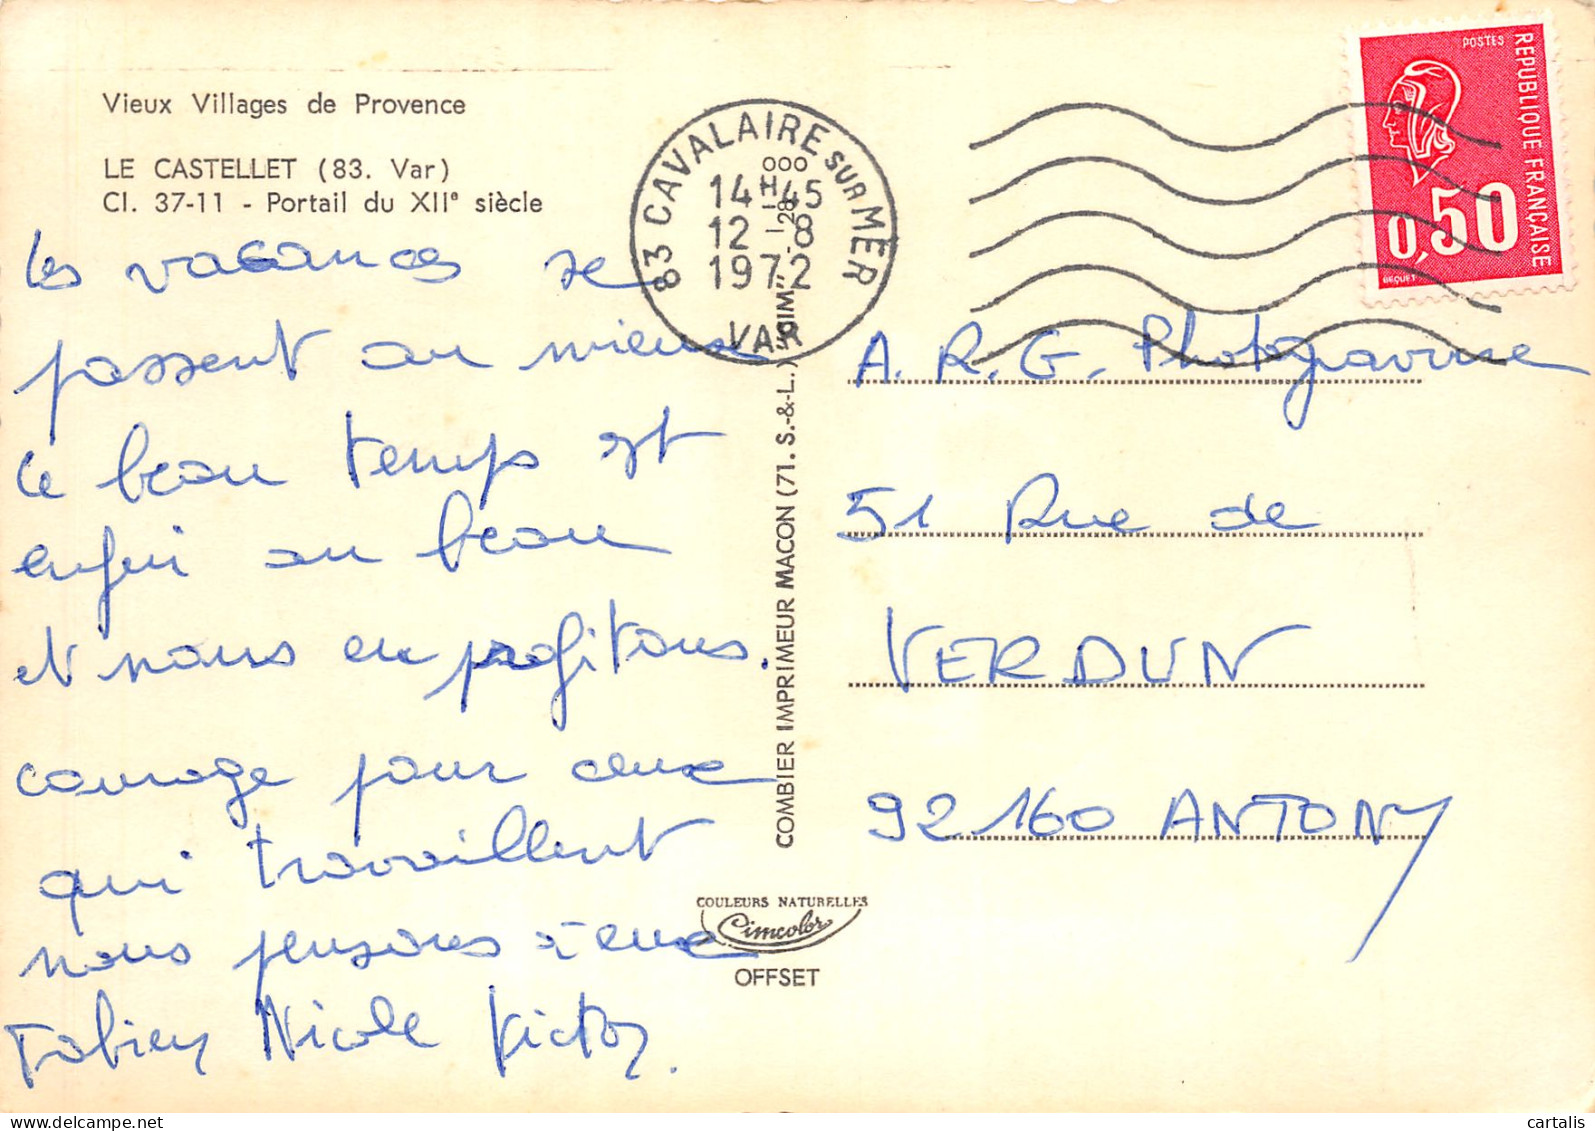 Vieux Villages de Provence
LE CASTELLET (83. Var)
Cl. 37-11 - Portail du XIIe siècle
Les vacances se
passent au mieux
le beau temps est
enfin au beau
et nous en profitons.
courage pour ceux
qui travaillent
nous pensons à eux
Fabien Nicole Victor.
83 CAVALAIRE SUR MER
000
14H45
12-8
1972
VAR
COMBIER IMPRIMEUR MACON (71. S.-&-L.) "CIM"
COULEURS NATURELLES
Cimcolor
OFFSET
POSTES
REPUBLIQUE FRANÇAISE
0,50
BEQUET
A. R. G. Photogravure
51 Rue de
VERDUN
92160 ANTONY
cartalis